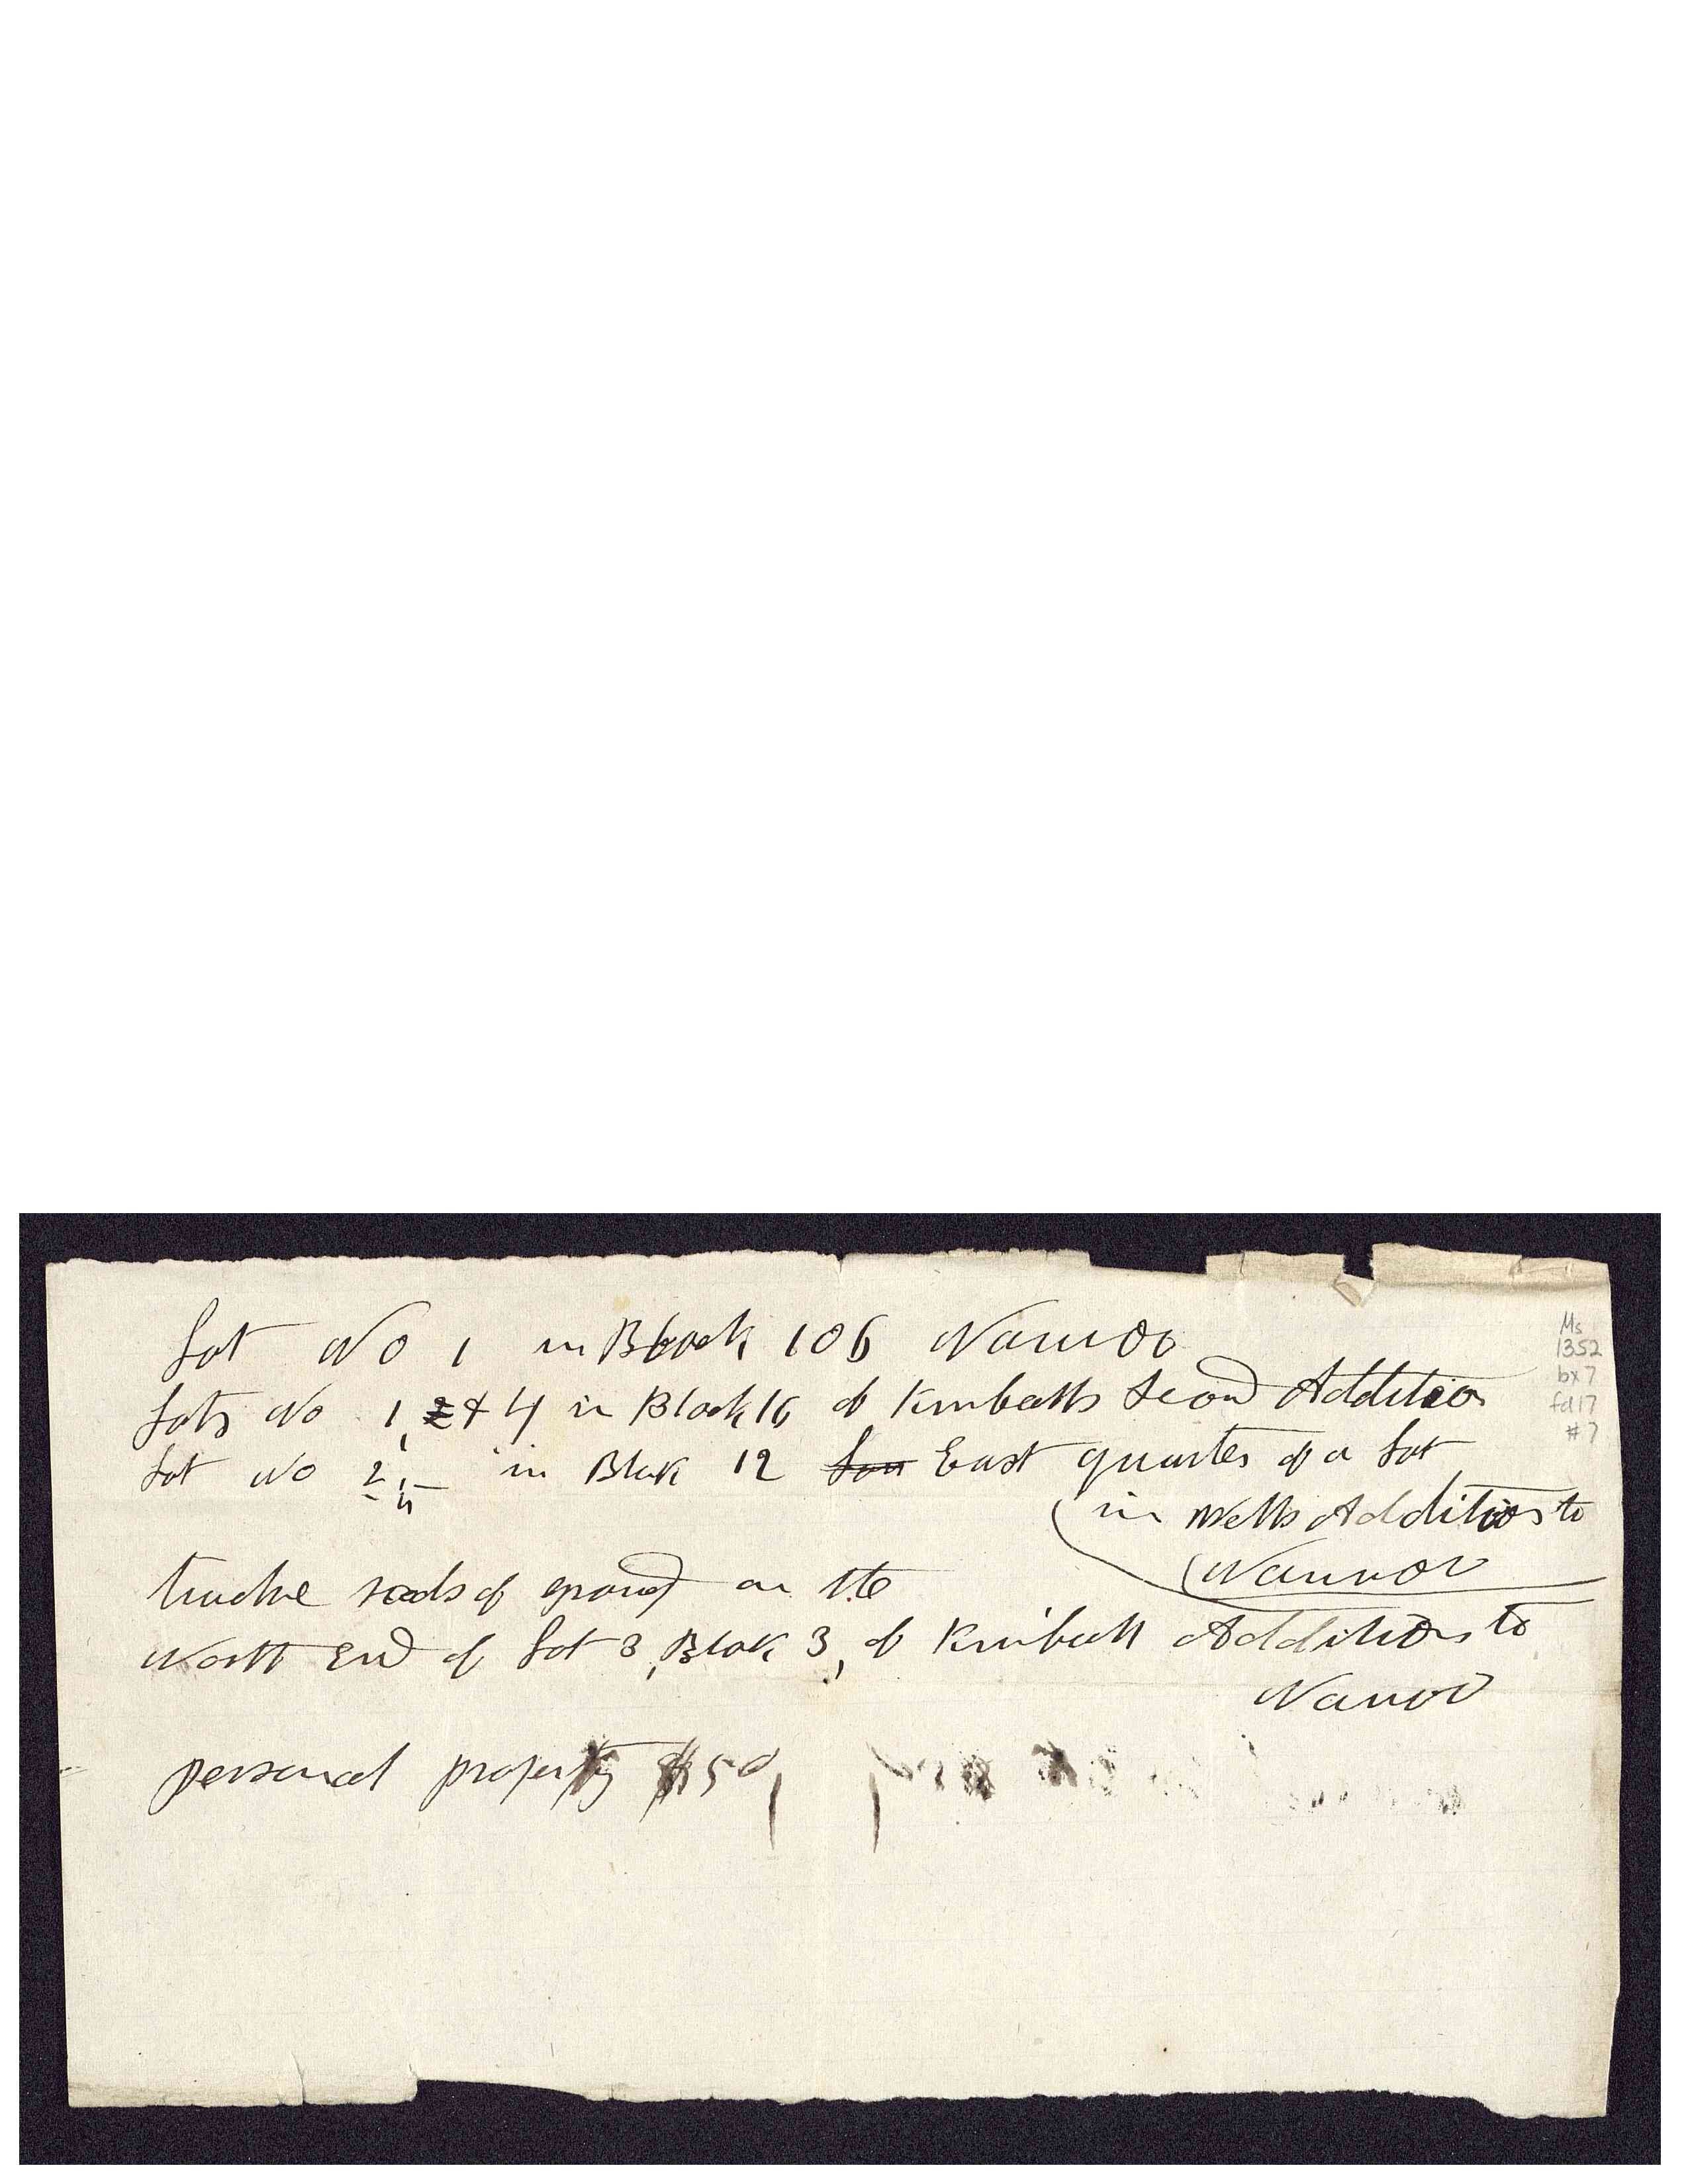 Lot No 1 in Block 106 Nauvoo
Lots No 1, 2 & 4 in Block 16 of Kimballs Second Addition
Lot No 2, in Block 12 East quarter of a Lot
in Wells Addition to
Nauvoo
twelve rods of ground on the
North End of Lot 3, Block 3, of Kimball Addition to
Nauvoo
personal property $50
Ms
1352
bx 7
fd 17
#7